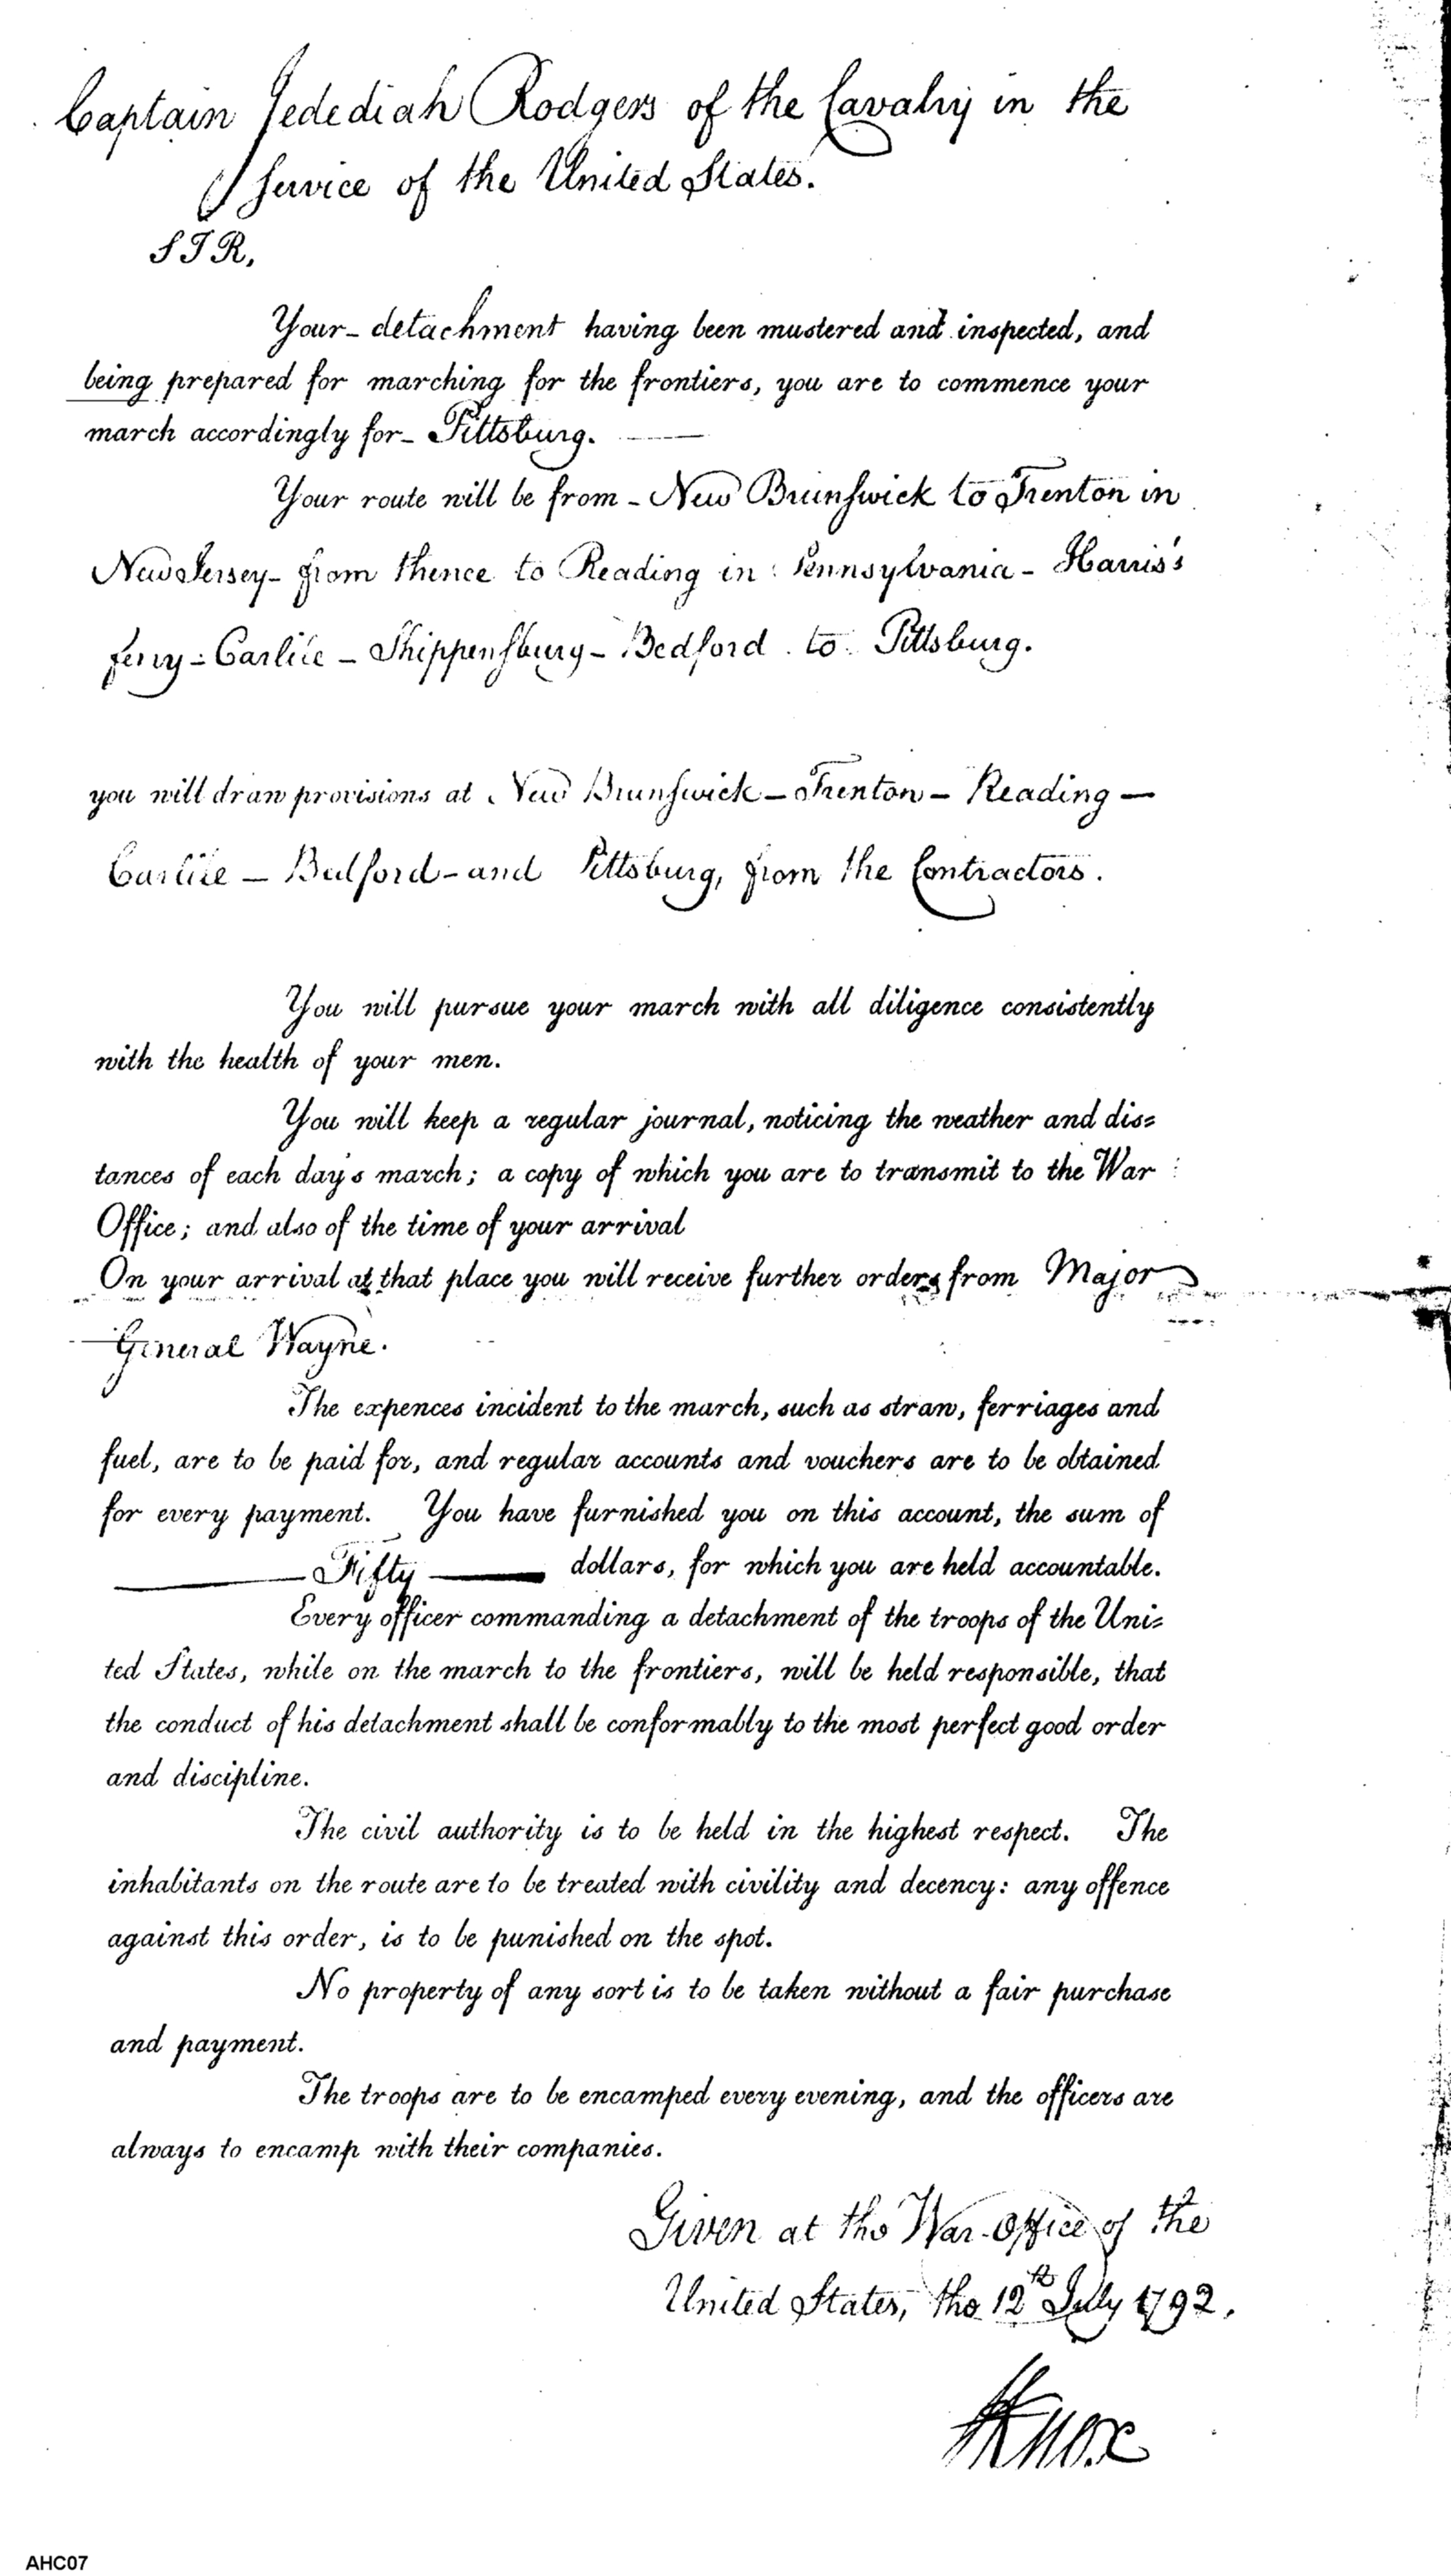 Captain Jedediah Rodgers of the Cavalry in the
Service of the United States.
SIR,
Your - detachment having been mustered and inspected, and
being prepared for marching for the frontiers, you are to commence your
march accordingly for - Pittsburg. ——
Your route will be from - New Brunswick to Trenton in
New Jersey - from thence to Reading in Pennsylvania - Harris's
ferry - Carlile - Shippensburg - Bedford to Pittsburg.
you will draw provisions at New Brunswick - Trenton - Reading -
Carlile - Bedford - and Pittsburg, from the Contractors.
You will pursue your march with all diligence consistently
with the health of your men.
You will keep a regular journal, noticing the weather and dis=
tances of each day's march; a copy of which you are to transmit to the War
Office; and also of the time of your arrival
On your arrival at that place you will receive further orders from Major
General Wayne.
The expences incident to the march, such as straw, ferriages and
fuel, are to be paid for, and regular accounts and vouchers are to be obtained
for every payment. You have furnished you on this account, the sum of
—— Fifty —— dollars, for which you are held accountable.
Every officer commanding a detachment of the troops of the Uni=
ted States, while on the march to the frontiers, will be held responsible, that
the conduct of his detachment shall be conformably to the most perfect good order
and discipline.
The civil authority is to be held in the highest respect. The
inhabitants on the route are to be treated with civility and decency: any offence
against this order, is to be punished on the spot.
No property of any sort is to be taken without a fair purchase
and payment.
The troops are to be encamped every evening, and the officers are
always to encamp with their companies.
Given at the War-Office of the
United States, the 12th July 1792.
HKnox
AHC07